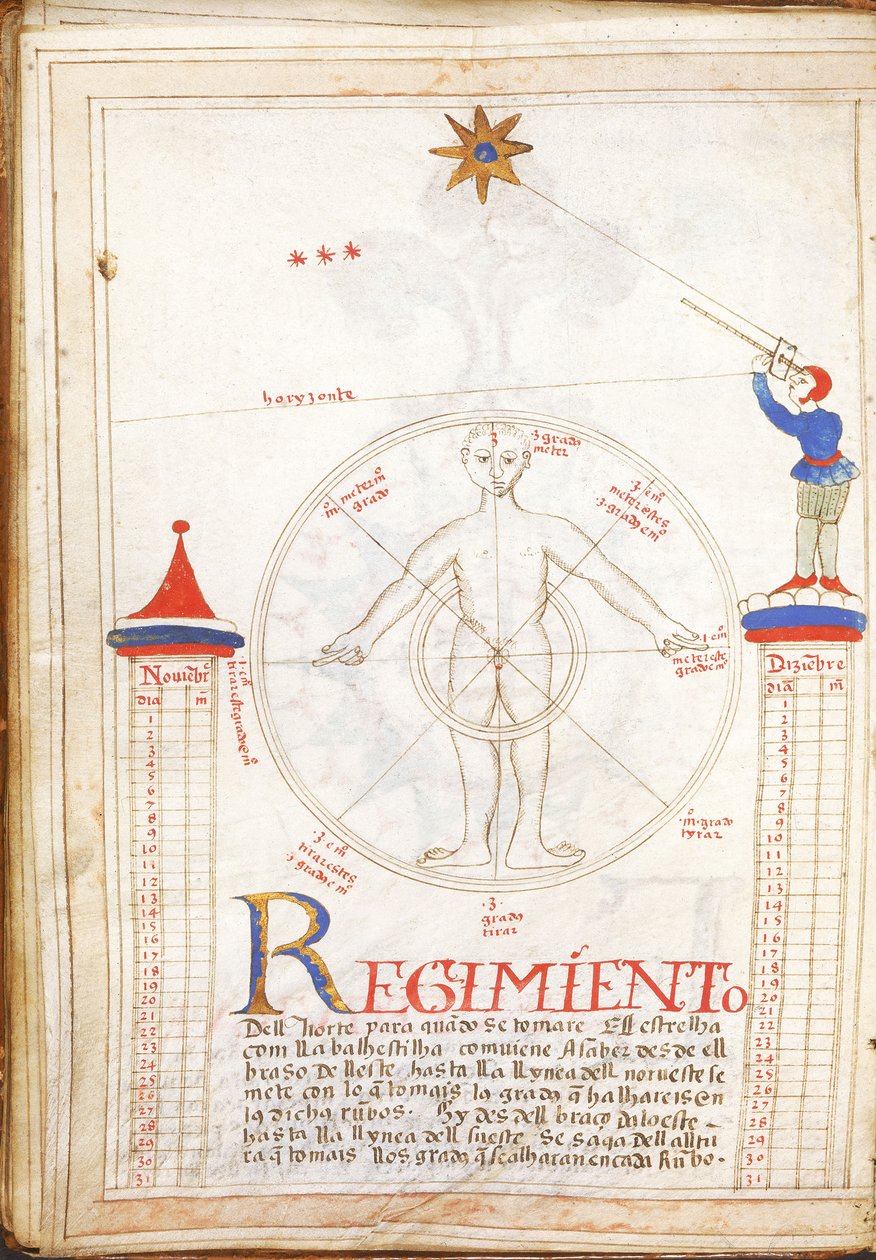 horyzonte
3
3 grado
meter
m̊ meter m̊
grado
3 e m̊
meter estes
3 grados e m̊
1 e m̊
meter este
grado e m̊
1 e m̊
tirar este grado e m̊
m̊ grado
tyrar
3 e m̊
tirar estes
3 grados e m̊
3
grados
tirar
Noviẽbr̃
dia m̃
1
2
3
4
5
6
7
8
9
10
11
12
13
14
15
16
17
18
19
20
21
22
23
24
25
26
27
28
29
30
31
Diziẽbre
dia m̃
1
2
3
4
5
6
7
8
9
10
11
12
13
14
15
16
17
18
19
20
21
22
23
24
25
26
27
28
29
30
31
REGIMIENTo
Dell Norte para quãdo se tomare Ell estrella
com lla balhestilha comviene A saber desde ell
braso De lleste hasta lla llynea dell norueste se
mete con lo q̃ tomais los grados q̃ halhareis en
los dichos rũbos. Hy desdell braço daloeste
hasta lla llynea dell sueste se saqa Dell alltu
ra q̃ tomais llos grados q̃ se alharan en cada Rũbo.